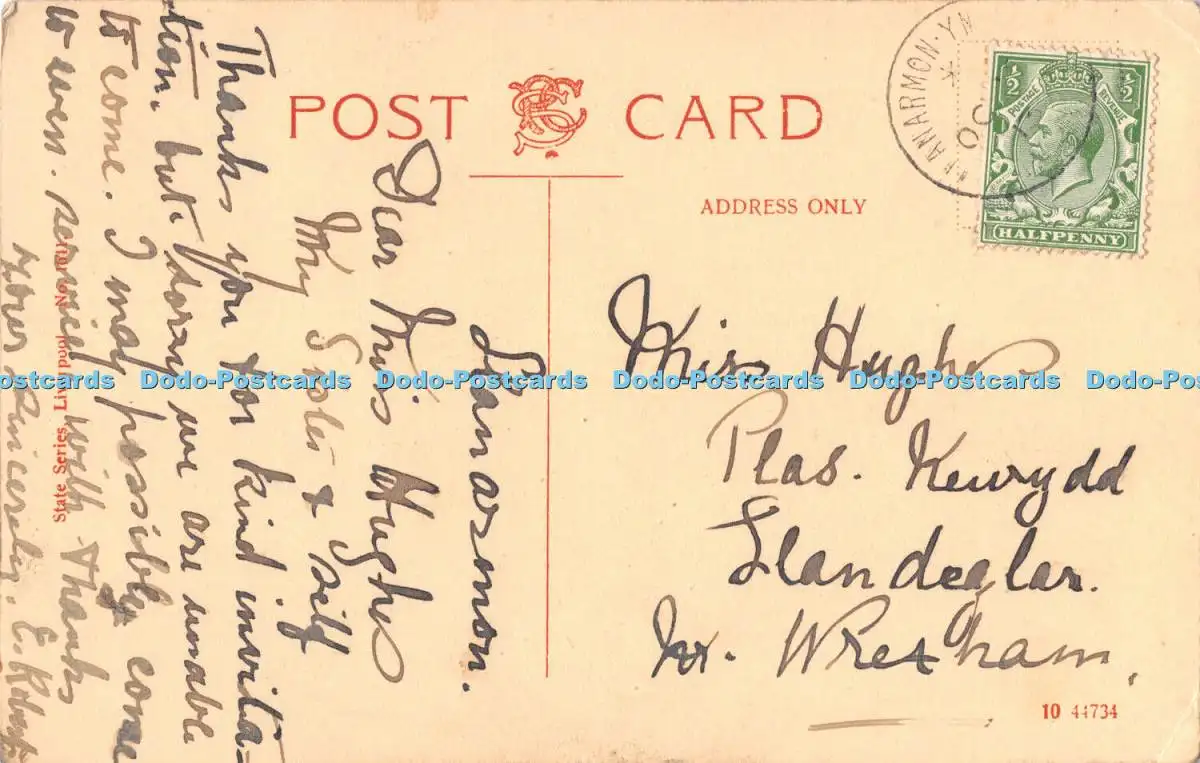 POST CARD
ADDRESS ONLY
LLANARMON·YN
½ ½
POSTAGE REVENUE
HALFPENNY
Miss Hughes
Plas. Newydd
Llandeglar.
Nr. Wrexham,
10 44734
Llanarmon.
Dear Miss Hughes
My Sister & self
Thanks you for kind invita-
tion, but sorry we are unable
to come. I may possibly come
to even. service with thanks
Yours sincerely. E. Roberts
State Series, Liverpool
Dodo-Postcards Dodo-Postcards Dodo-Postcards Dodo-Postcards Dodo-Postcards Dodo-Postcards